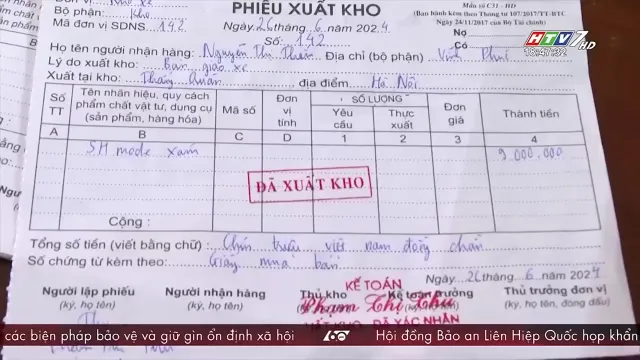 Bộ phận: Kho
Mã đơn vị SDNS 142
PHIẾU XUẤT KHO
Ngày 26 tháng 6 năm 2024
Số: 142
Mẫu số C31 - H
(Ban hành kèm theo Thông tư 107/2017/TT-BTC
Ngày 24/11/2017 của Bộ Tài chính)
Nợ
Có
HTV7 HD
18:47:32
Họ tên người nhận hàng: Nguyễn Thị Thiên Địa chỉ (bộ phận) Vĩnh Phúc
Lý do xuất kho: Bàn giao xe
Xuất tại kho: địa điểm Hà Nội
Số TT
Tên nhãn hiệu, quy cách phẩm chất vật tư, dung cụ (sản phẩm, hàng hóa)
Mã số
Đơn vị tính
SỐ LƯỢNG
Yêu cầu
Thực xuất
Đơn giá
Thành tiền
A B C D 1 2 3 4
SH mode xám 9.000.000
ĐÃ XUẤT KHO
Cộng :
Tổng số tiền (viết bằng chữ) : Chín triệu việt nam đồng chẵn
Số chứng từ kèm theo: Giấy mua bán
Ngày 26 tháng 6 năm 2024
Người lập phiếu
(ký, họ tên)
Người nhận hàng
(ký, họ tên)
Thủ kho
KẾ TOÁN
Kế toán trưởng
(ký, họ tên)
Thủ trưởng đơn vị
(ký, họ tên, đóng dấu)
Phạm Thị Thu
ĐÃ XÁC NHẬN
các biện pháp bảo vệ và giữ gìn ổn định xã hội
Hội đồng Bảo an Liên Hiệp Quốc họp khẩn